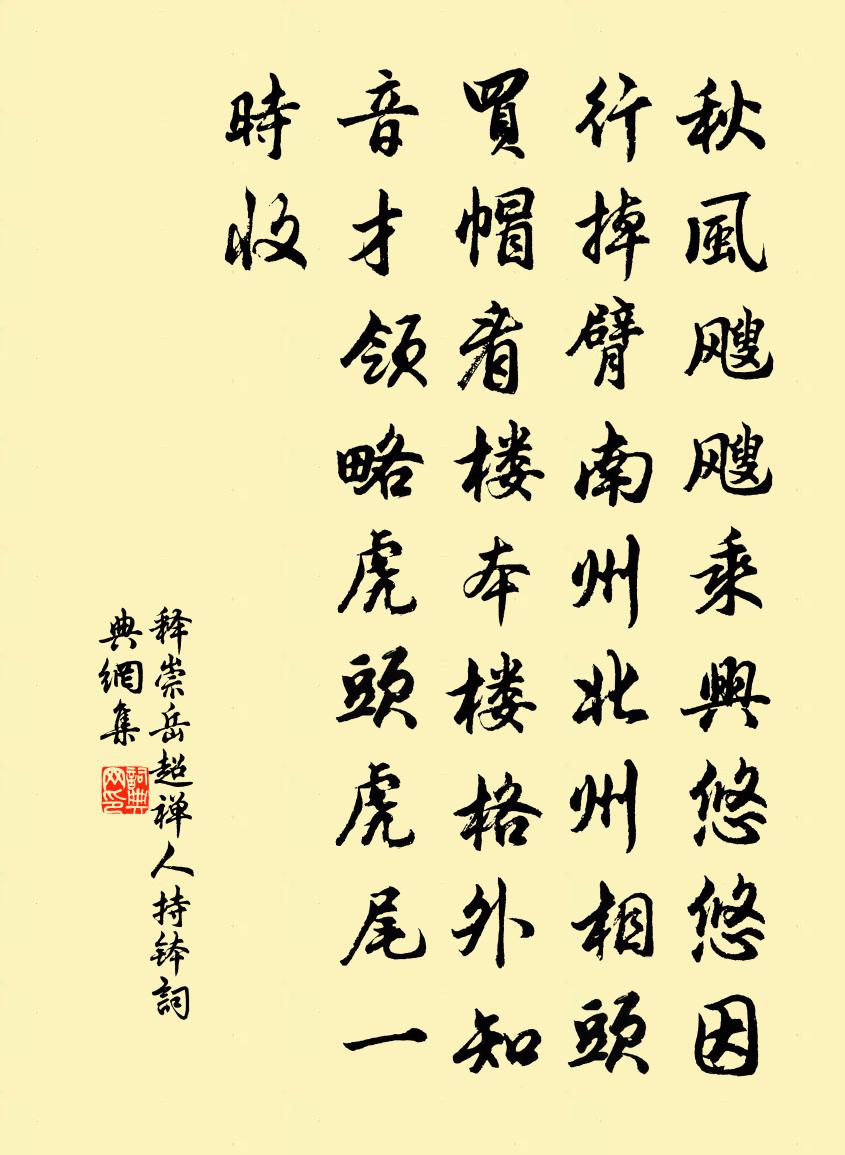 秋風颼颼乘興悠悠因
行掉臂南州北州相頭
買帽看楼本楼格外知
音才領略虎頭虎尾一
時收
释崇岳超禅人持钵詞
典網集
詞典网印